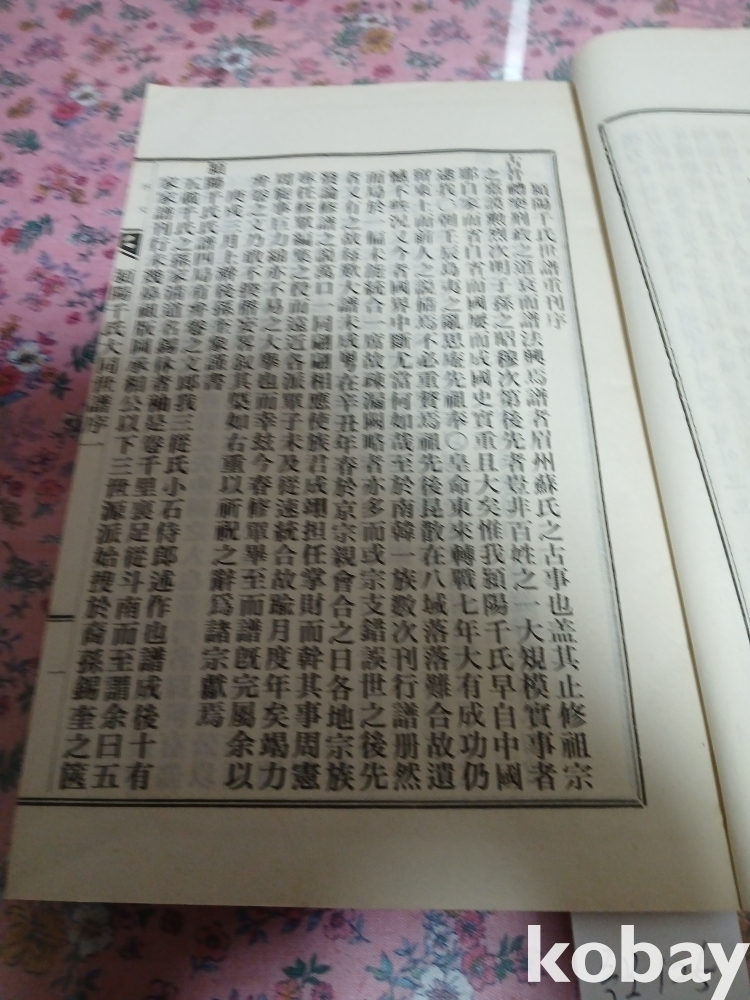 潁陽千氏世譜重刊序
古昔禮樂刑政之道衰而譜法興焉譜者眉州蘇氏之古事也盖其止修祖宗
之嘉謨勲烈次明子孫之昭穆次第後先者豈非百姓之一大規模實事者
耶自家而省自省而國屢而成國史實重且大矣惟我潁陽千氏早自中國
逮我〇朝壬辰島夷之亂思庵先祖奉〇皇命東來轉戰七年大有成功仍
留東土而前人之說悉焉不必重贅焉祖先後昆散在八域落落難合故遺
憾不些况又今者國界中斷尤當何如哉至於南韓一族數次刊行譜册然
而局於一偏未能統合一席故疎漏闕略者亦多而或宗支錯誤世之後先
者又有之故每歎大譜未成粤在辛丑年春於京宗親會合之日各地宗族
發論修譜之說萬口一同翩翩相應使族君成翊担任掌財而幹其事周憲
專任修單編集之役而遠近各派單子未及從速統合故踰月度年矣竭力
周旋事巨力綿亦不易之大擧也而幸玆今春修單畢至而譜旣完屬余以
弁卷之文乃敢不揆僭妄畧叙其槩如右重以祈祝之辭爲諸宗獻焉
庚戌三月上澣後孫奎象謹書
潁陽千氏氏譜四局有弁卷之文郎我三從氏小石侍郎述作也譜成後十有
五歲千氏之孫家淸道名錫林者袖是卷千里裹足從斗南而至謂余曰五
家家譜刊行未幾嘉祖版圖承相公以下三世源派始搜於裔孫錫奎之篋
潁陽千氏大同世譜序
一
kobay